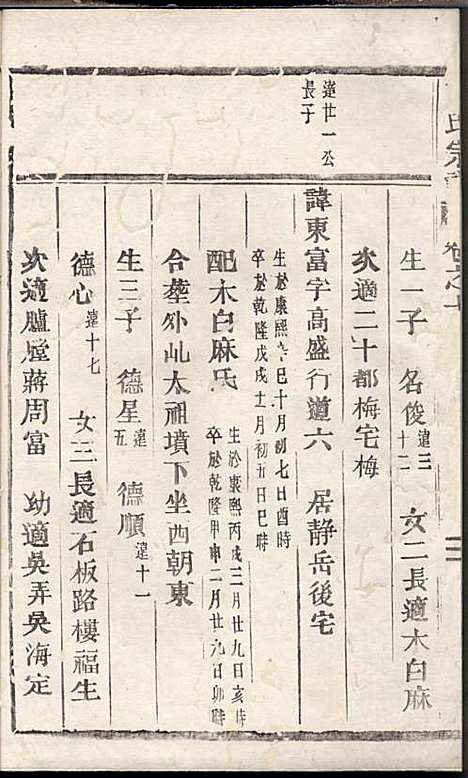 氏宗
卷之十
生一子 名俊達三十二 女二長適木白麻
次適二十都梅宅梅
達廿一公長子
諱東富字高盛行道六 居靜岳後宅
生於康熙辛巳十月初七日酉時
卒於乾隆戊戌十一月初五日巳時
配木白麻氏
生於康熙丙戌三月廿九日亥時
卒於乾隆甲申二月廿九日卯時
合葬外乢太祖墳下坐西朝東
生三子 德星達五 德順達十一
德心達十七 女三長適石板路樓福生
次適臚膛蔣周富 幼適吳弄吳海定